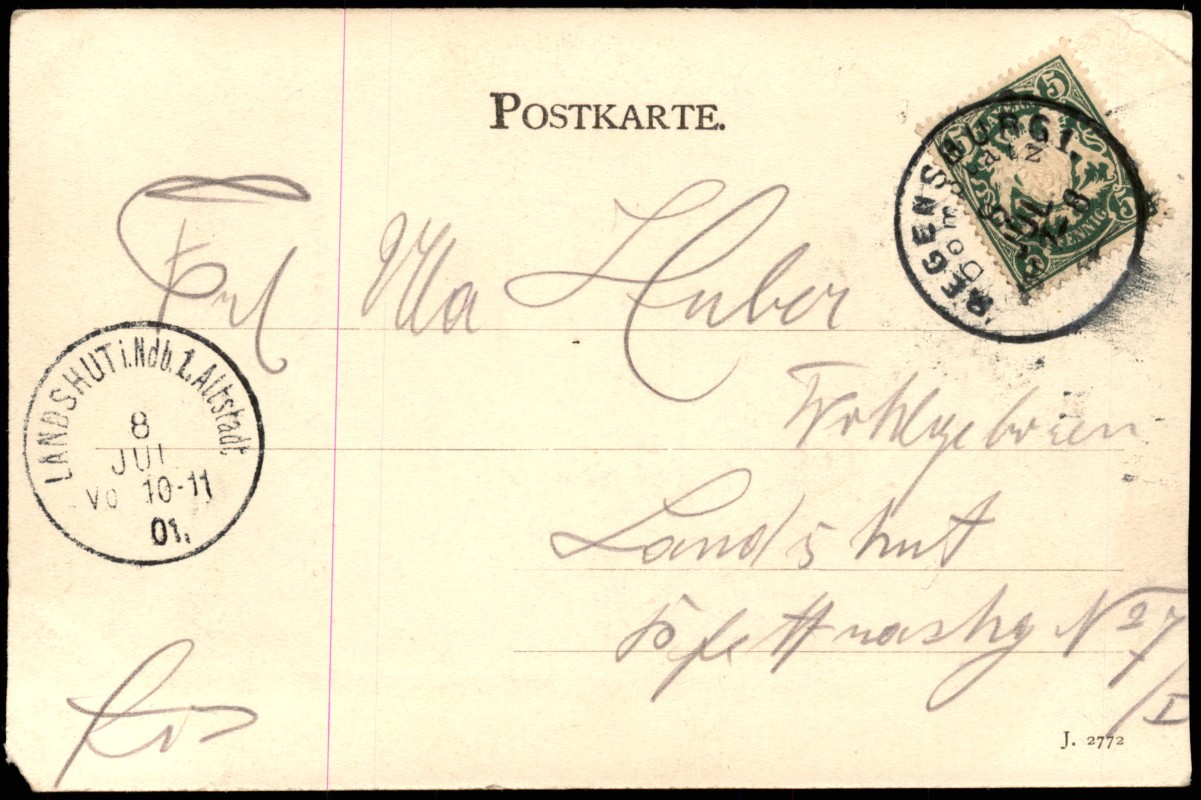 POSTKARTE.
5 5
PFENNIG
5 5
REGENSBURG 1.
Domplatz
JUL
LANDSHUT i. Ndb. 1. Altstadt.
8
JUL
Vo 10-11
01.
Frl Huber
Wohlgeboren
Landshut
No 27/I
J. 2772